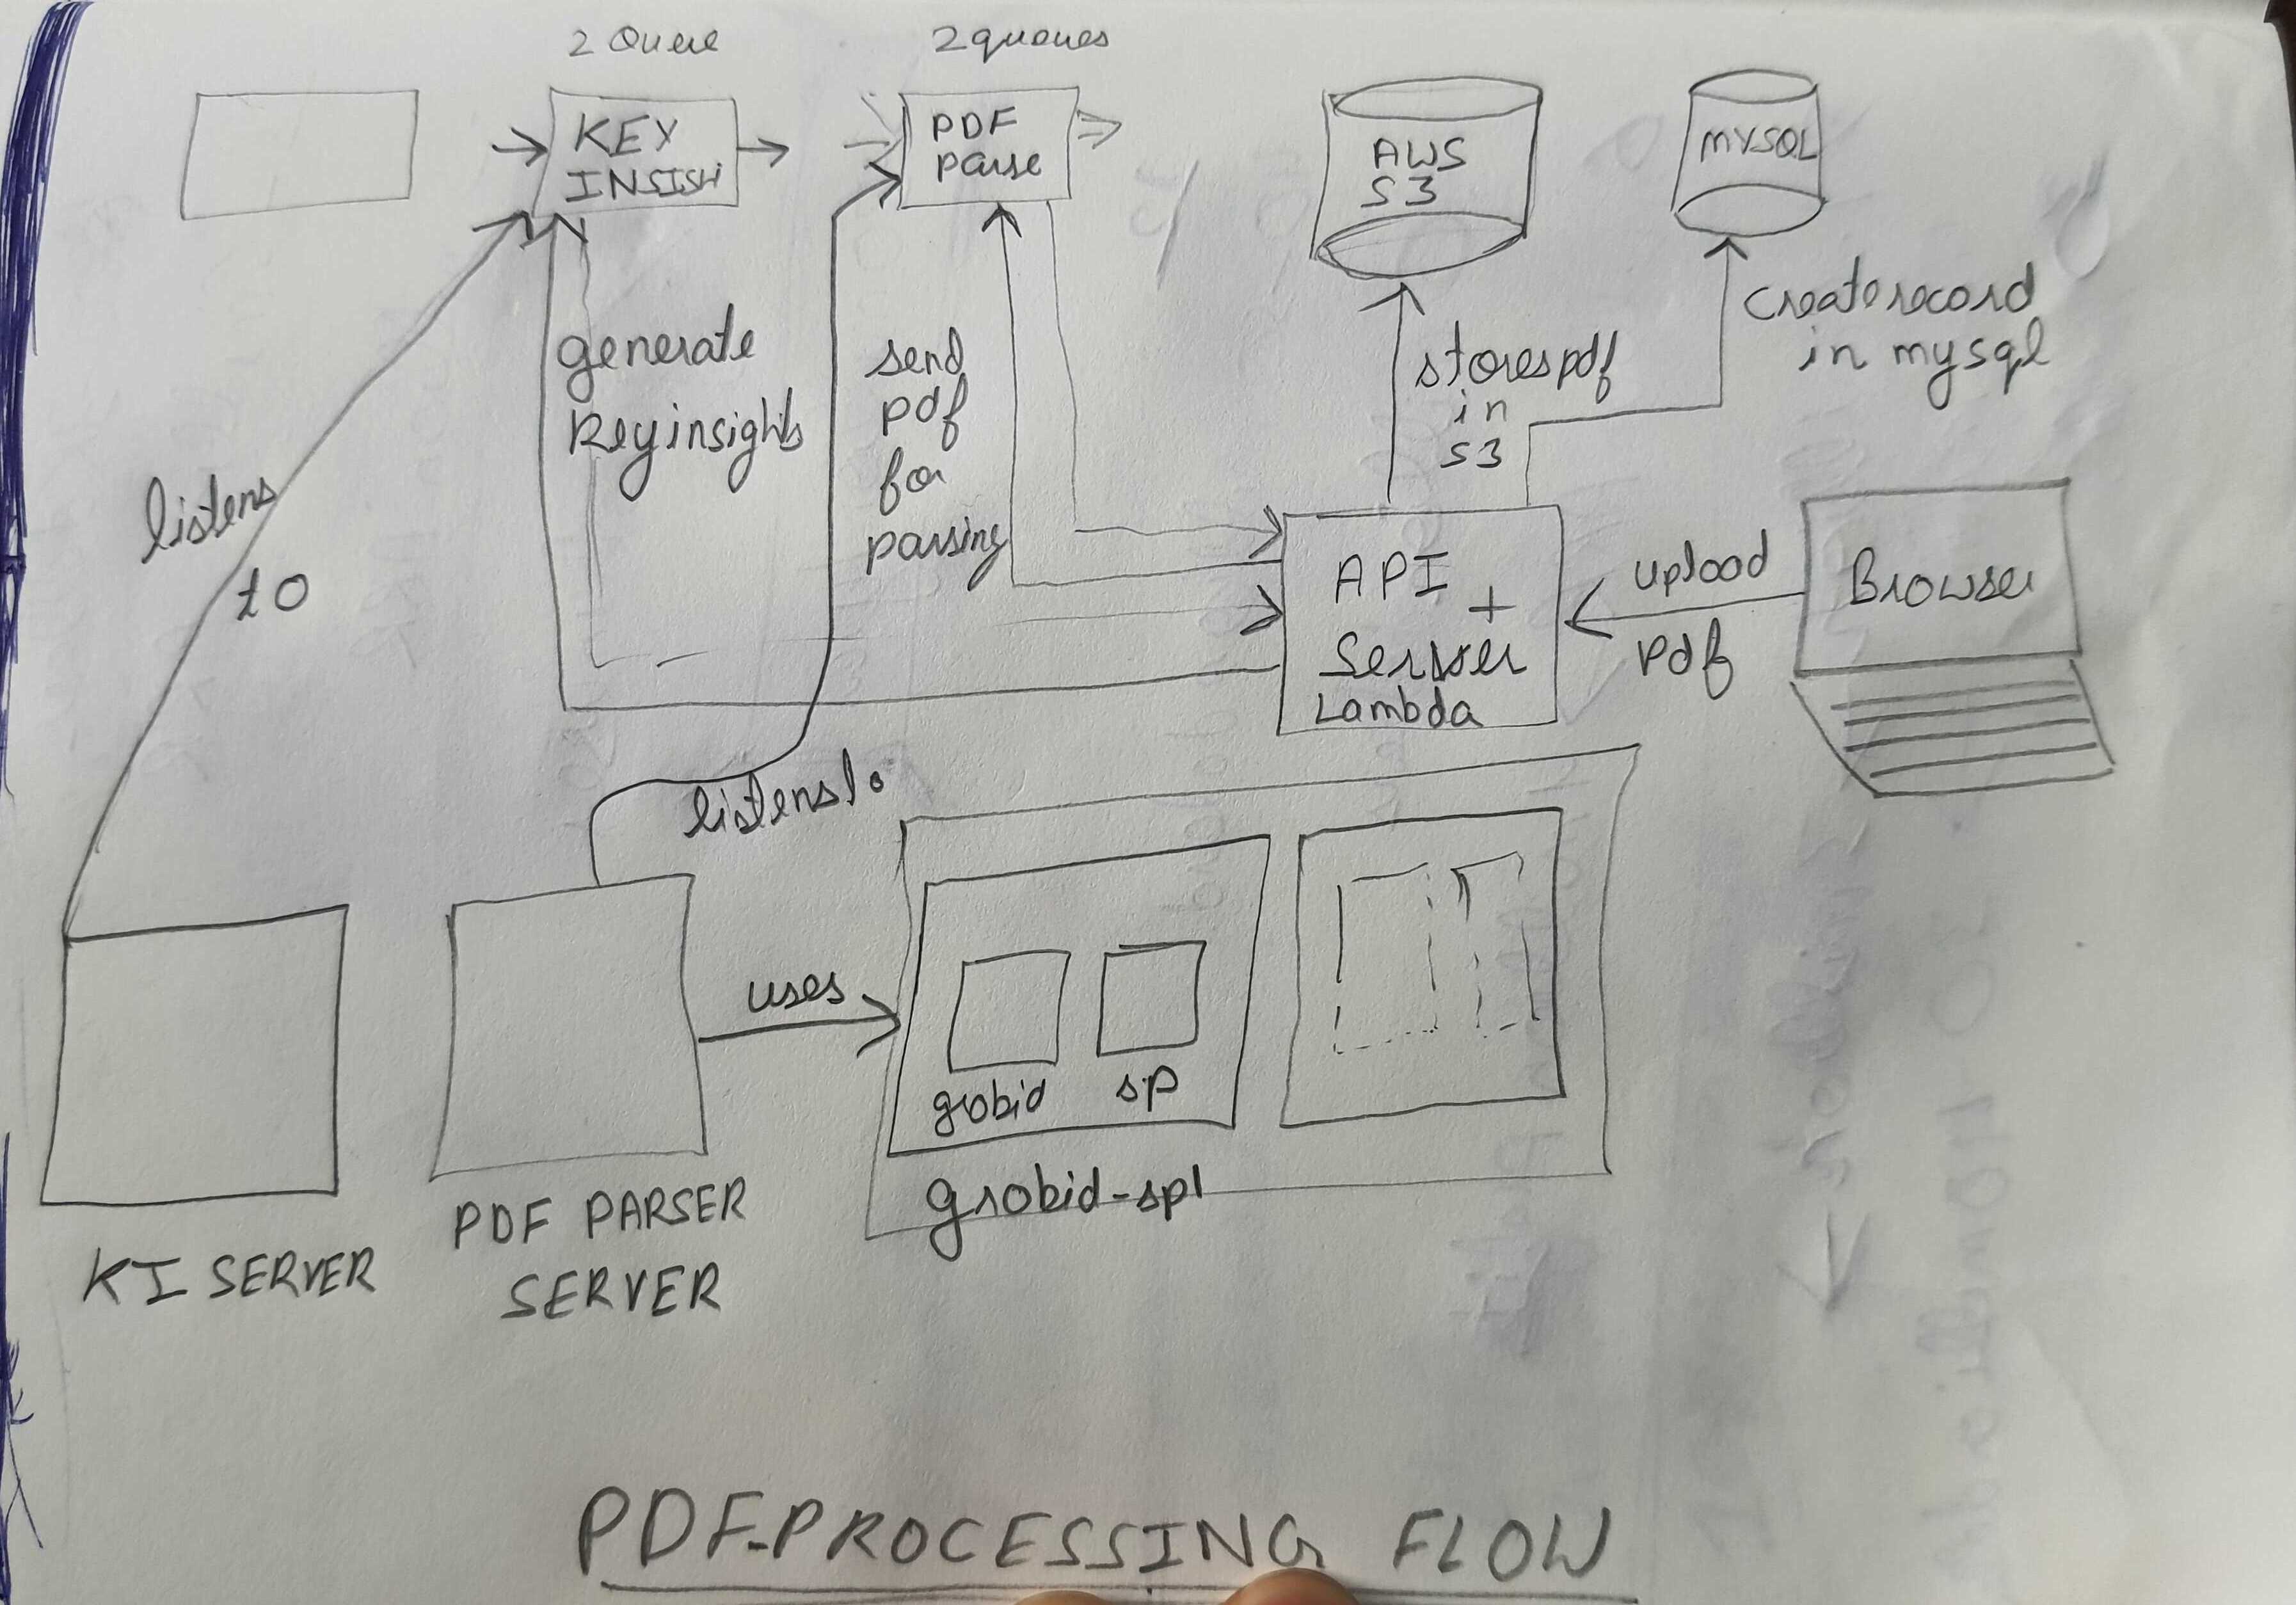 2 Queue
2 queues
KEY
INSIGH
PDF
parse
AWS
S3
MYSQL
generate
key insights
send
pdf
for
parsing
stores pdf
in
S3
create record
in mysql
listens
to
API +
Server
Lambda
upload
pdf
Browser
listens to
uses
grobid
sp
grobid-spl
KI SERVER
PDF PARSER
SERVER
PDF-PROCESSING FLOW